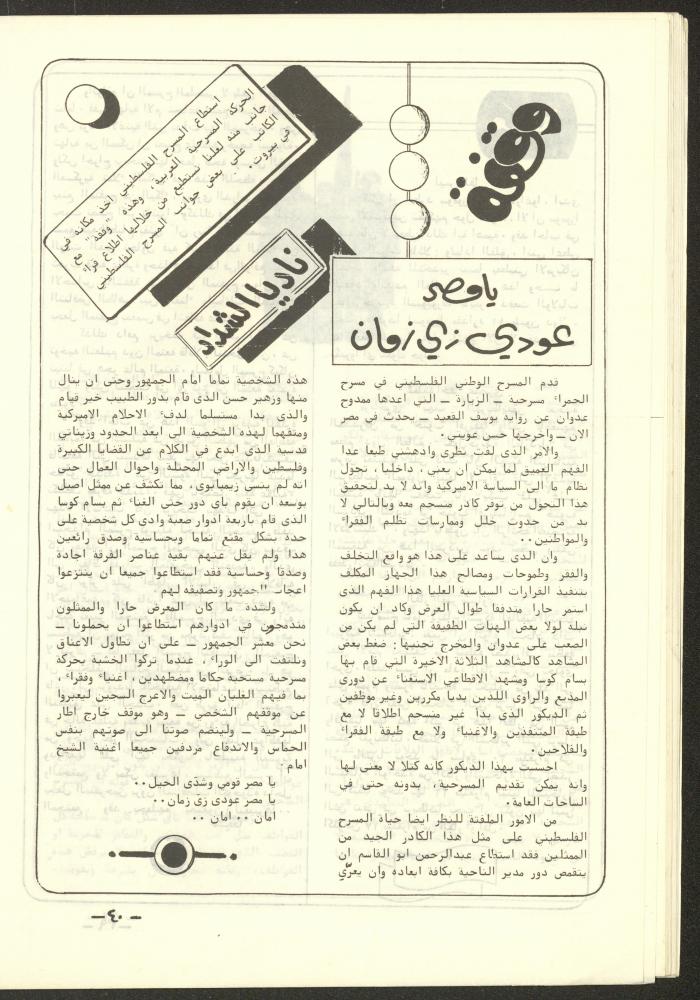 وقفة
استطاع المسرح الفلسطيني اخذ مكانه في
الحركة المسرحية العربية، وهذه "وقفة" مع
جانب منه لعلنا نستطيع من خلالها اطلاع قراء
الكاتب على بعض جوانب المسرح الفلسطيني
في بيروت.
ناديا الشداد
يا مصر
عودي زي زمان
قدم المسرح الوطني الفلسطيني في مسرح
الحمراء مسرحية ــ الزيارة ــ التي اعدها ممدوح
عدوان عن رواية يوسف القعيد ــ يحدث في مصر
الان ــ واخرجها حسن عويتي.
والامر الذي لفت نظري وادهشني طبعا عدا
الفهم العميق لما يمكن ان يعني، داخليا، تحول
نظام ما الى السياسة الاميركية وانه لا بد لتحقيق
هذا التحول من توفر كادر منسجم معه وبالتالي لا
بد من حدوث خلل وممارسات تظلم الفقراء
والمواطنين..
وان الذي يساعد على هذا هو واقع التخلف
والفقر وطموحات ومصالح هذا الجهاز المكلف
بتنفيذ القرارات السياسية العليا هذا الفهم الذي
استمر حارا متدفقا طوال العرض وكاد ان يكون
نبلة لولا بعض الهنات الطفيفة التي لم يكن من
الصعب على عدوان والمخرج تجنبها: ضغط بعض
المشاهد كالمشاهد الثلاثة الاخيرة التي قام بها
بسام كوسا ومشهد الاقطاعي الاستغناء عن دوري
المذيع والراوي اللذين بديا مكررين وغير موظفين
ثم الديكور الذي بدأ غير منسجم اطلاقا لا مع
طبقة المتنفذين والاغنياء ولا مع طبقة الفقراء
والفلاحين.
احسست بهذا الديكور كانه كتلا لا معنى لها
وانه يمكن تقديم المسرحية، بدونه حتى في
الساحات العامة.
من الامور الملفتة للنظر ايضا حياة المسرح
الفلسطيني على مثل هذا الكادر الجيد من
الممثلين فقد استطاع عبدالرحمن ابو القاسم ان
يتقمص دور مدير الناحية بكافة ابعاده وان يعرّي
هذه الشخصية تماما امام الجمهور وحتى ان ينال
منها وزهير حسن الذي قام بدور الطبيب خير قيام
والذي بدا مستسلما لدفء الاحلام الاميركية
ومتفهما لهذه الشخصية الى ابعد الحدود وزيناتي
قدسية الذي ابدع في الكلام عن القضايا الكبيرة
وفلسطين والاراضي المحتلة واحوال العمال حتى
انه لم ينسى زيمبابوي، مما تكشف عن ممثل اصيل
بوسعه ان يقوم باي دور حتى الغناء ثم بسام كوسا
الذي قام باربعة ادوار صعبة وادى كل شخصية على
حدة بشكل مقنع تماما وبحساسية وصدق رائعين
هذا ولم يقل عنهم بقية عناصر الفرقة اجادة
وصدقا وحساسية فقد استطاعوا جميعا ان ينتزعوا
اعجاب الجمهور وتصفيقه لهم.
ولشدة ما كان العرض حارا والممثلون
مندمجون في ادوارهم استطاعوا ان يحملونا ــ
نحن معشر الجمهور ــ على ان نطاول الاعناق
ونلتفت الى الوراء، عندما تركوا الخشبة بحركة
مسرحية مستحبة حكاما ومضطهدين، اغنياء وفقراء،
بما فيهم الغلبان الميت والاعرج السجين ليعبروا
عن موقفهم الشخصي ــ وهو موقف خارج اطار
المسرحية ــ ولينضم صوتنا الى صوتهم بنفس
الحماس والاندفاع مردفين جميعا اغنية الشيخ
امام.
يا مصر قومي وشدّي الحيل..
يا مصر عودي زيّ زمان..
امان .. امان ..
ــ ٤٠ ــ